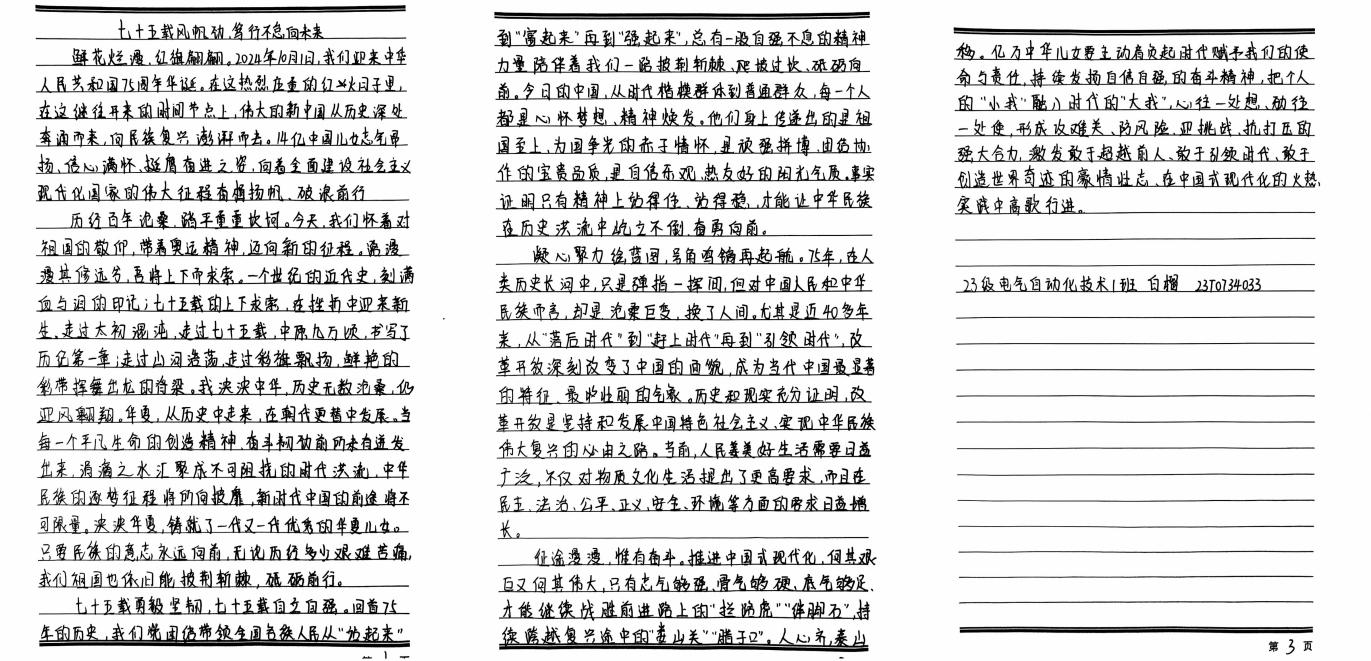 七十五载风帆劲,笃行不怠向未来
鲜花烂漫,红旗翩翩。2024年10月1日,我们迎来中华
人民共和国75周年华诞。在这热烈庄重的红火日子里,
在这继往开来的时间节点上,伟大的新中国从历史深处
奔涌而来,向民族复兴澎湃而去。14亿中国儿女志气昂
扬、信心满怀、挺膺奋进之姿,向着全面建设社会主义
现代化国家的伟大征程奋楫扬帆、破浪前行
历经百年沧桑,踏平重重坎坷。今天,我们怀着对
祖国的敬仰,带着奥运精神,迈向新的征程。路漫
漫其修远兮,吾将上下而求索。一个世纪的近代史,刻满
血与泪的印记;七十五载的上下求索,在挫折中迎来新
生、走过太初混沌,走过七十五载,中原九万顷,书写了
历纪第一章;走过山河浩荡,走过彩旗飘扬,鲜艳的
彩带挥舞出龙的脊梁。我泱泱中华,历史无数沧桑,仍
迎风翱翔。华夏,从历史中走来,在朝代更替中发展。当
每一个平凡生命的创造精神、奋斗韧劲前所未有迸发
出来,涓滴之水汇聚成不可阻挡的时代洪流,中华
民族的逐梦征程将所向披靡,新时代中国的前途将不
可限量。泱泱华夏,铸就了一代又一代优秀的华夏儿女。
只要民族的意志永远向前,无论历经多少艰难苦痛,
我们祖国也依旧能披荆斩棘,砥砺前行。
七十五载勇毅坚韧,七十五载自立自强。回首75
年的历史,我们党团结带领全国各族人民从“站起来”
第1页
到“富起来”再到“强起来”,总有一股自强不息的精神
力量陪伴着我们一路披荆斩棘、爬坡过坎、砥砺向
前。今日的中国,从时代楷模群体到普通群众,每一个人
都是心怀梦想、精神焕发。他们身上传递出的是祖
国至上、为国争光的赤子情怀,是顽强拼搏、团结协
作的宝贵品质,是自信乐观、热友好的阳光气质。事实
证明只有精神上站得住、站得稳,才能让中华民族
在历史洪流中屹立不倒、奋勇向前。
凝心聚力绘蓝图,号角鸣锵再起航。75年,在人
类历史长河中,只是弹指一挥间,但对中国人民和中华
民族而言,却是沧桑巨变,换了人间。尤其是近40多年
来,从“落后时代”到“赶上时代”再到“引领时代”,改
革开放深刻改变了中国的面貌,成为当代中国最显著
的特征、最壮丽的气象。历史和现实充分证明,改
革开放是坚持和发展中国特色社会主义、实现中华民族
伟大复兴的必由之路。当前,人民美美好生活需要日益
广泛,不仅对物质文化生活提出了更高要求,而且在
民主、法治、公平、正义、安全、环境等方面的要求日益增
长。
征途漫漫,惟有奋斗。推进中国式现代化,何其艰
巨又何其伟大,只有志气够强、骨气够硬、底气够足、
才能继续战胜前进路上的“拦路虎”“绊脚石”,持
续跨越复兴途中的“娄山关”“腊子口”。人心齐,泰山
移。亿万中华儿女要主动肩负起时代赋予我们的使
命与责任,持续发扬自信自强的奋斗精神,把个人
的“小我”融入时代的“大我”,心往一处想、劲往
一处使,形成攻难关、防风险、迎挑战、抗打压的
强大合力,激发敢于超越前人、敢于引领时代、敢于
创造世界奇迹的豪情壮志、在中国式现代化的火热
实践中高歌行进。
23级电气自动化技术1班 白榴 23T0734033
第3页